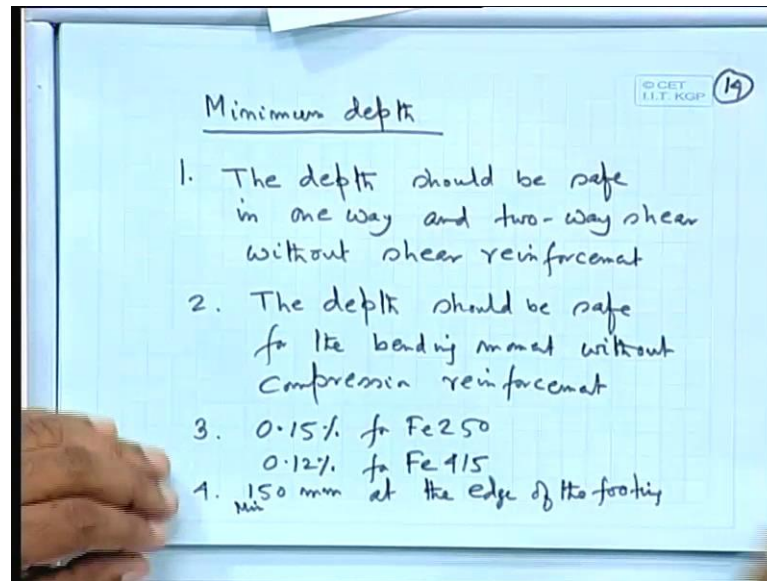 © CET
I.I.T. KGP
19
Minimum depth
1. The depth should be safe
in one way and two-way shear
without shear reinforcemat
2. The depth should be safe
for the bending momat without
compressin reinforcemat
3. 0.15% for Fe250
0.12% for Fe 415
4. 150 mm at the edge of the footing
Min